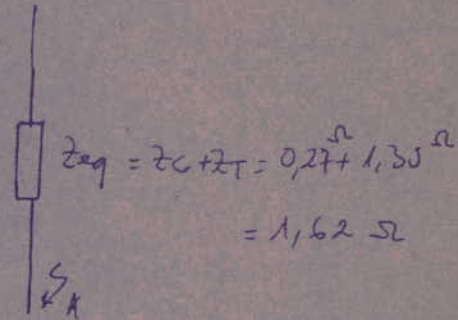 Zeq = Zc + ZT = 0,27 Ω + 1,35 Ω
= 1,62 Ω